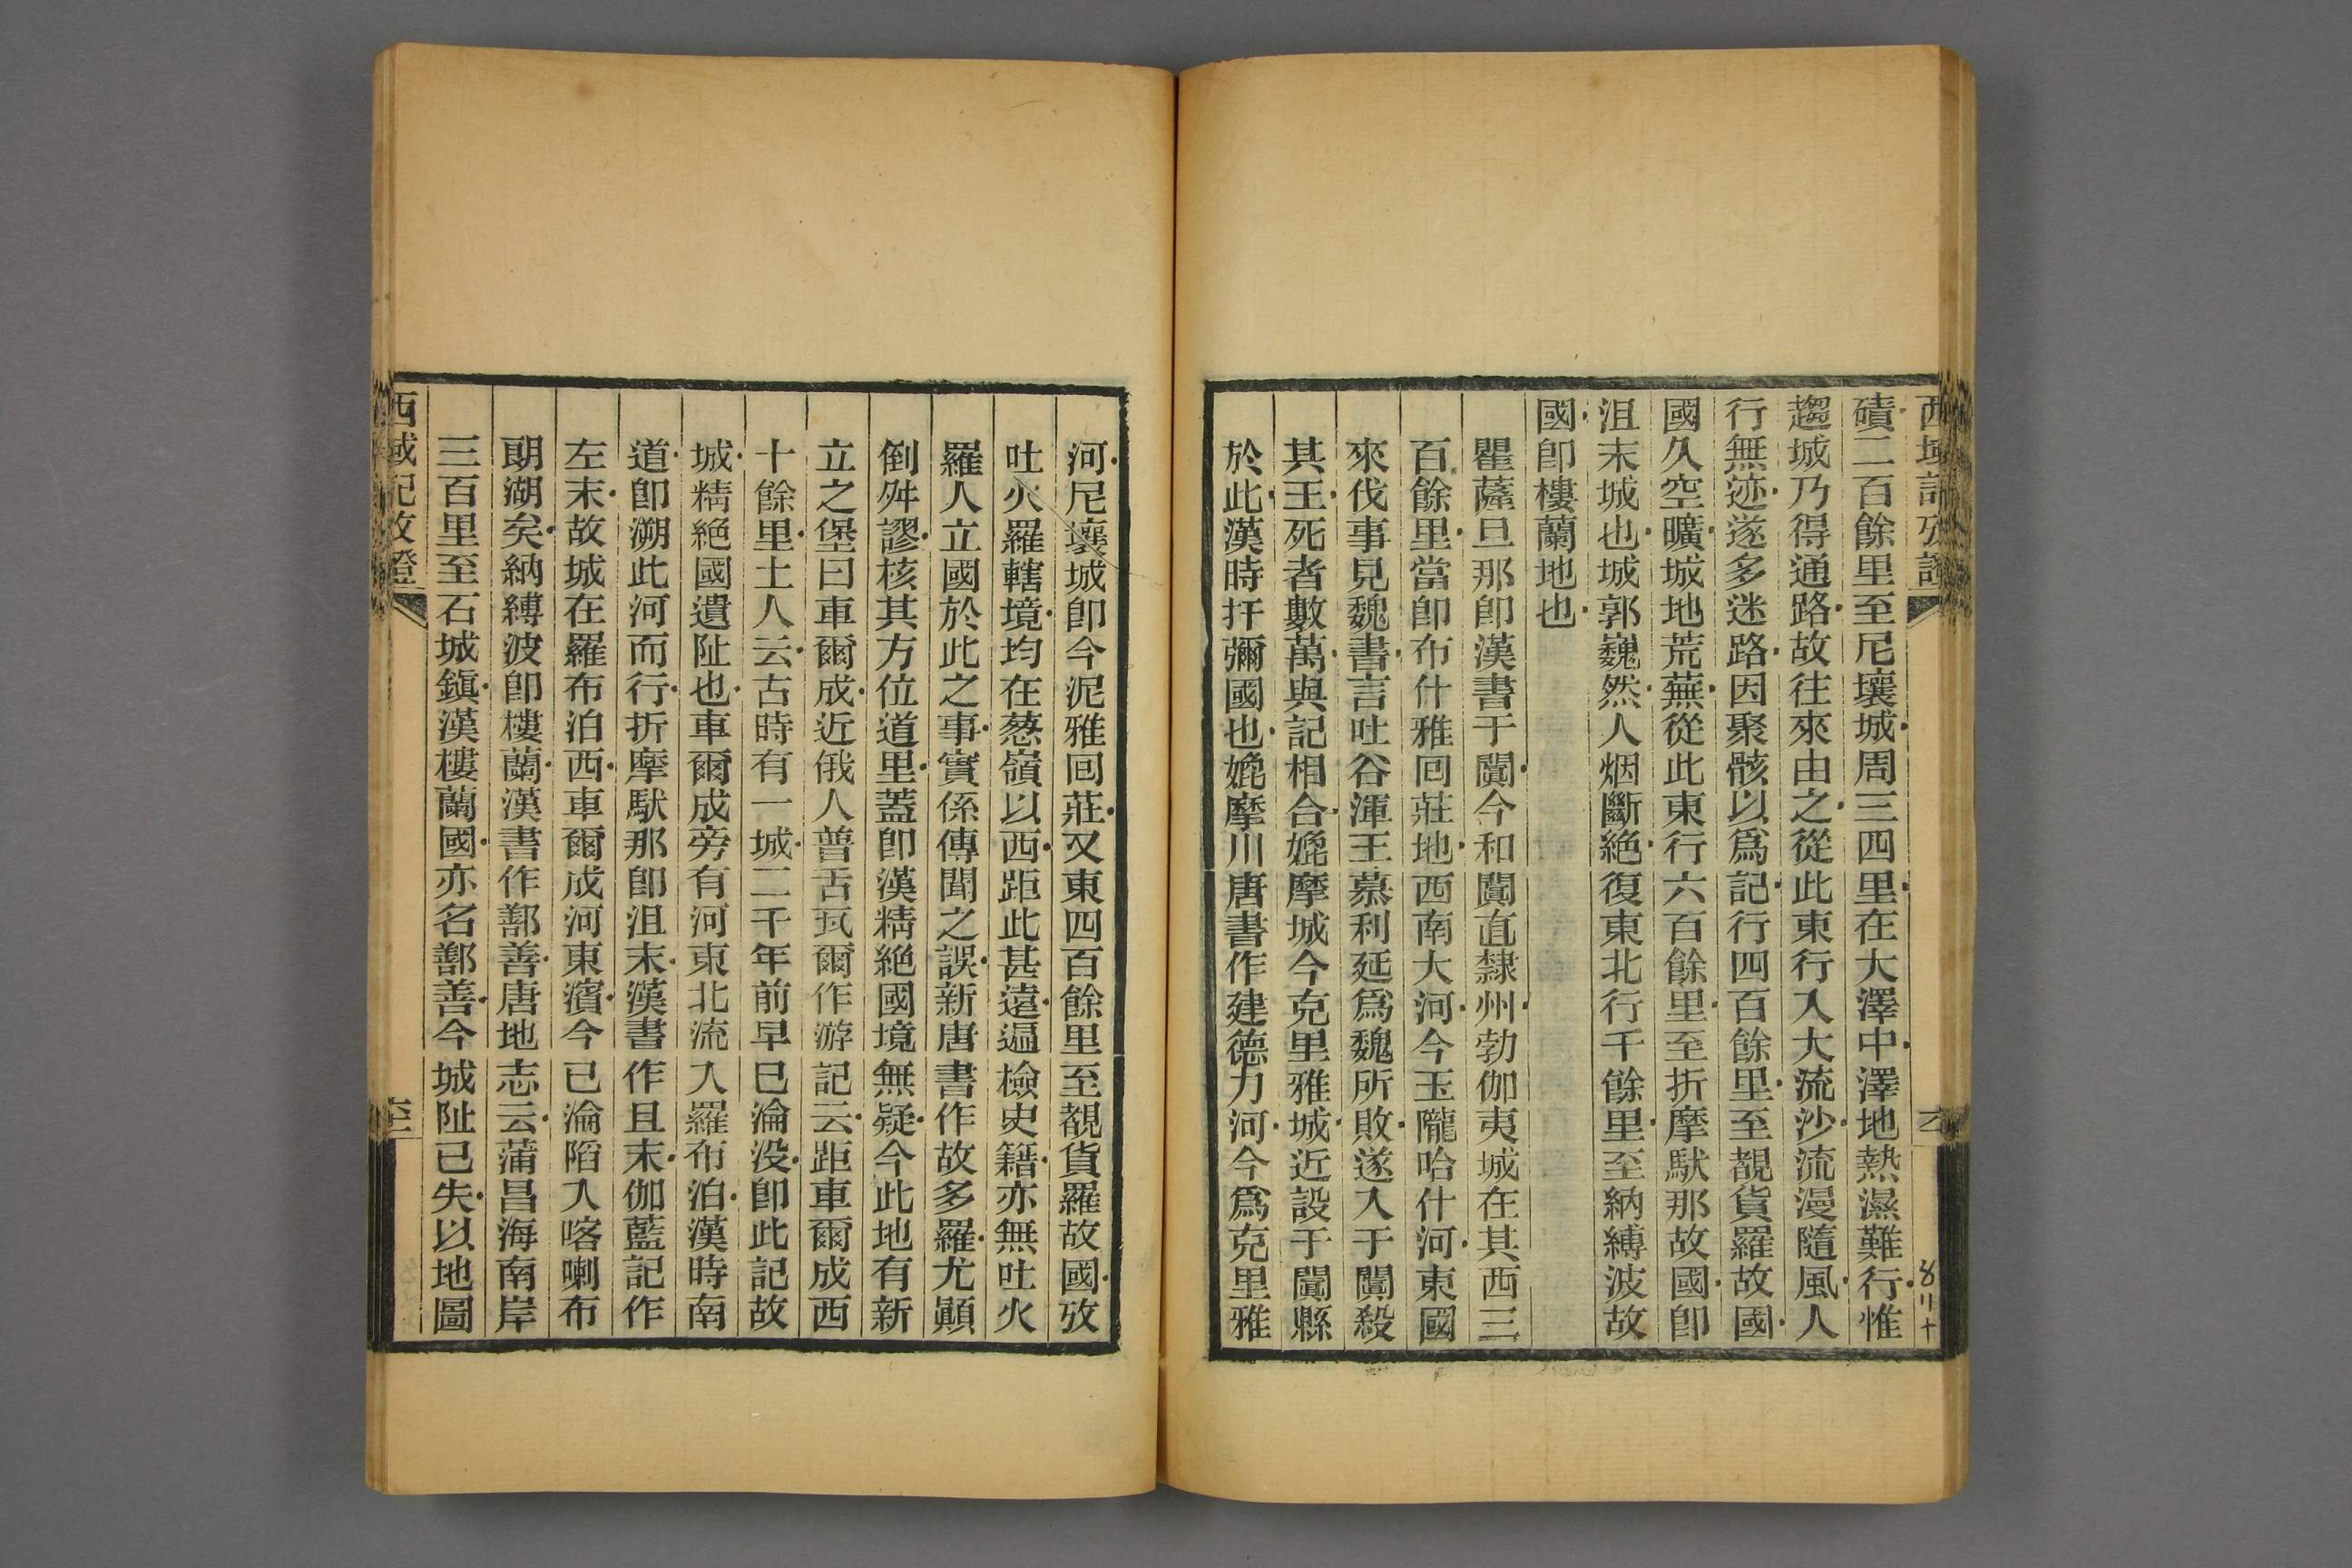 磧二百餘里至尼壤城周三四里在大澤中澤地熱濕難行惟
趨城乃得通路故往來由之從此東行入大流沙流漫隨風人
行無迹遂多迷路因聚骸以爲記行四百餘里至覩貨羅故國
國久空曠城地荒蕪從此東行六百餘里至折摩馱那故國卽
沮末城也城郭巍然人烟斷絶復東北行千餘里至納縛波故
國卽樓蘭地也
瞿薩旦那卽漢書于闐今和闐直隸州勃伽夷城在其西三
百餘里當卽布什雅回莊地西南大河今玉隴哈什河東國
來伐事見魏書言吐谷渾王慕利延爲魏所敗遂入于闐殺
其王死者數萬與記相合媲摩城今克里雅城近設于闐縣
於此漢時扜彌國也媲摩川唐書作建德力河今爲克里雅
河尼壤城卽今泥雅回莊又東四百餘里至覩貨羅故國攷
吐火羅轄境均在葱嶺以西距此甚遠遍檢史籍亦無吐火
羅人立國於此之事實係傳聞之誤新唐書作故多羅尤顚
倒舛謬核其方位道里蓋卽漢精絶國境無疑今此地有新
立之堡曰車爾成近俄人普舌瓦爾作游記云距車爾成西
十餘里土人云古時有一城二千年前早已淪没卽此記故
城精絶國遺阯也車爾成旁有河東北流入羅布泊漢時南
道卽溯此河而行折摩馱那卽沮末漢書作且末伽藍記作
左末故城在羅布泊西車爾成河東濱今已淪陷入喀喇布
朗湖矣納縛波卽樓蘭漢書作鄯善唐地志云蒲昌海南岸
三百里至石城鎭漢樓蘭國亦名鄯善今城阯已失以地圖
西域記攷證